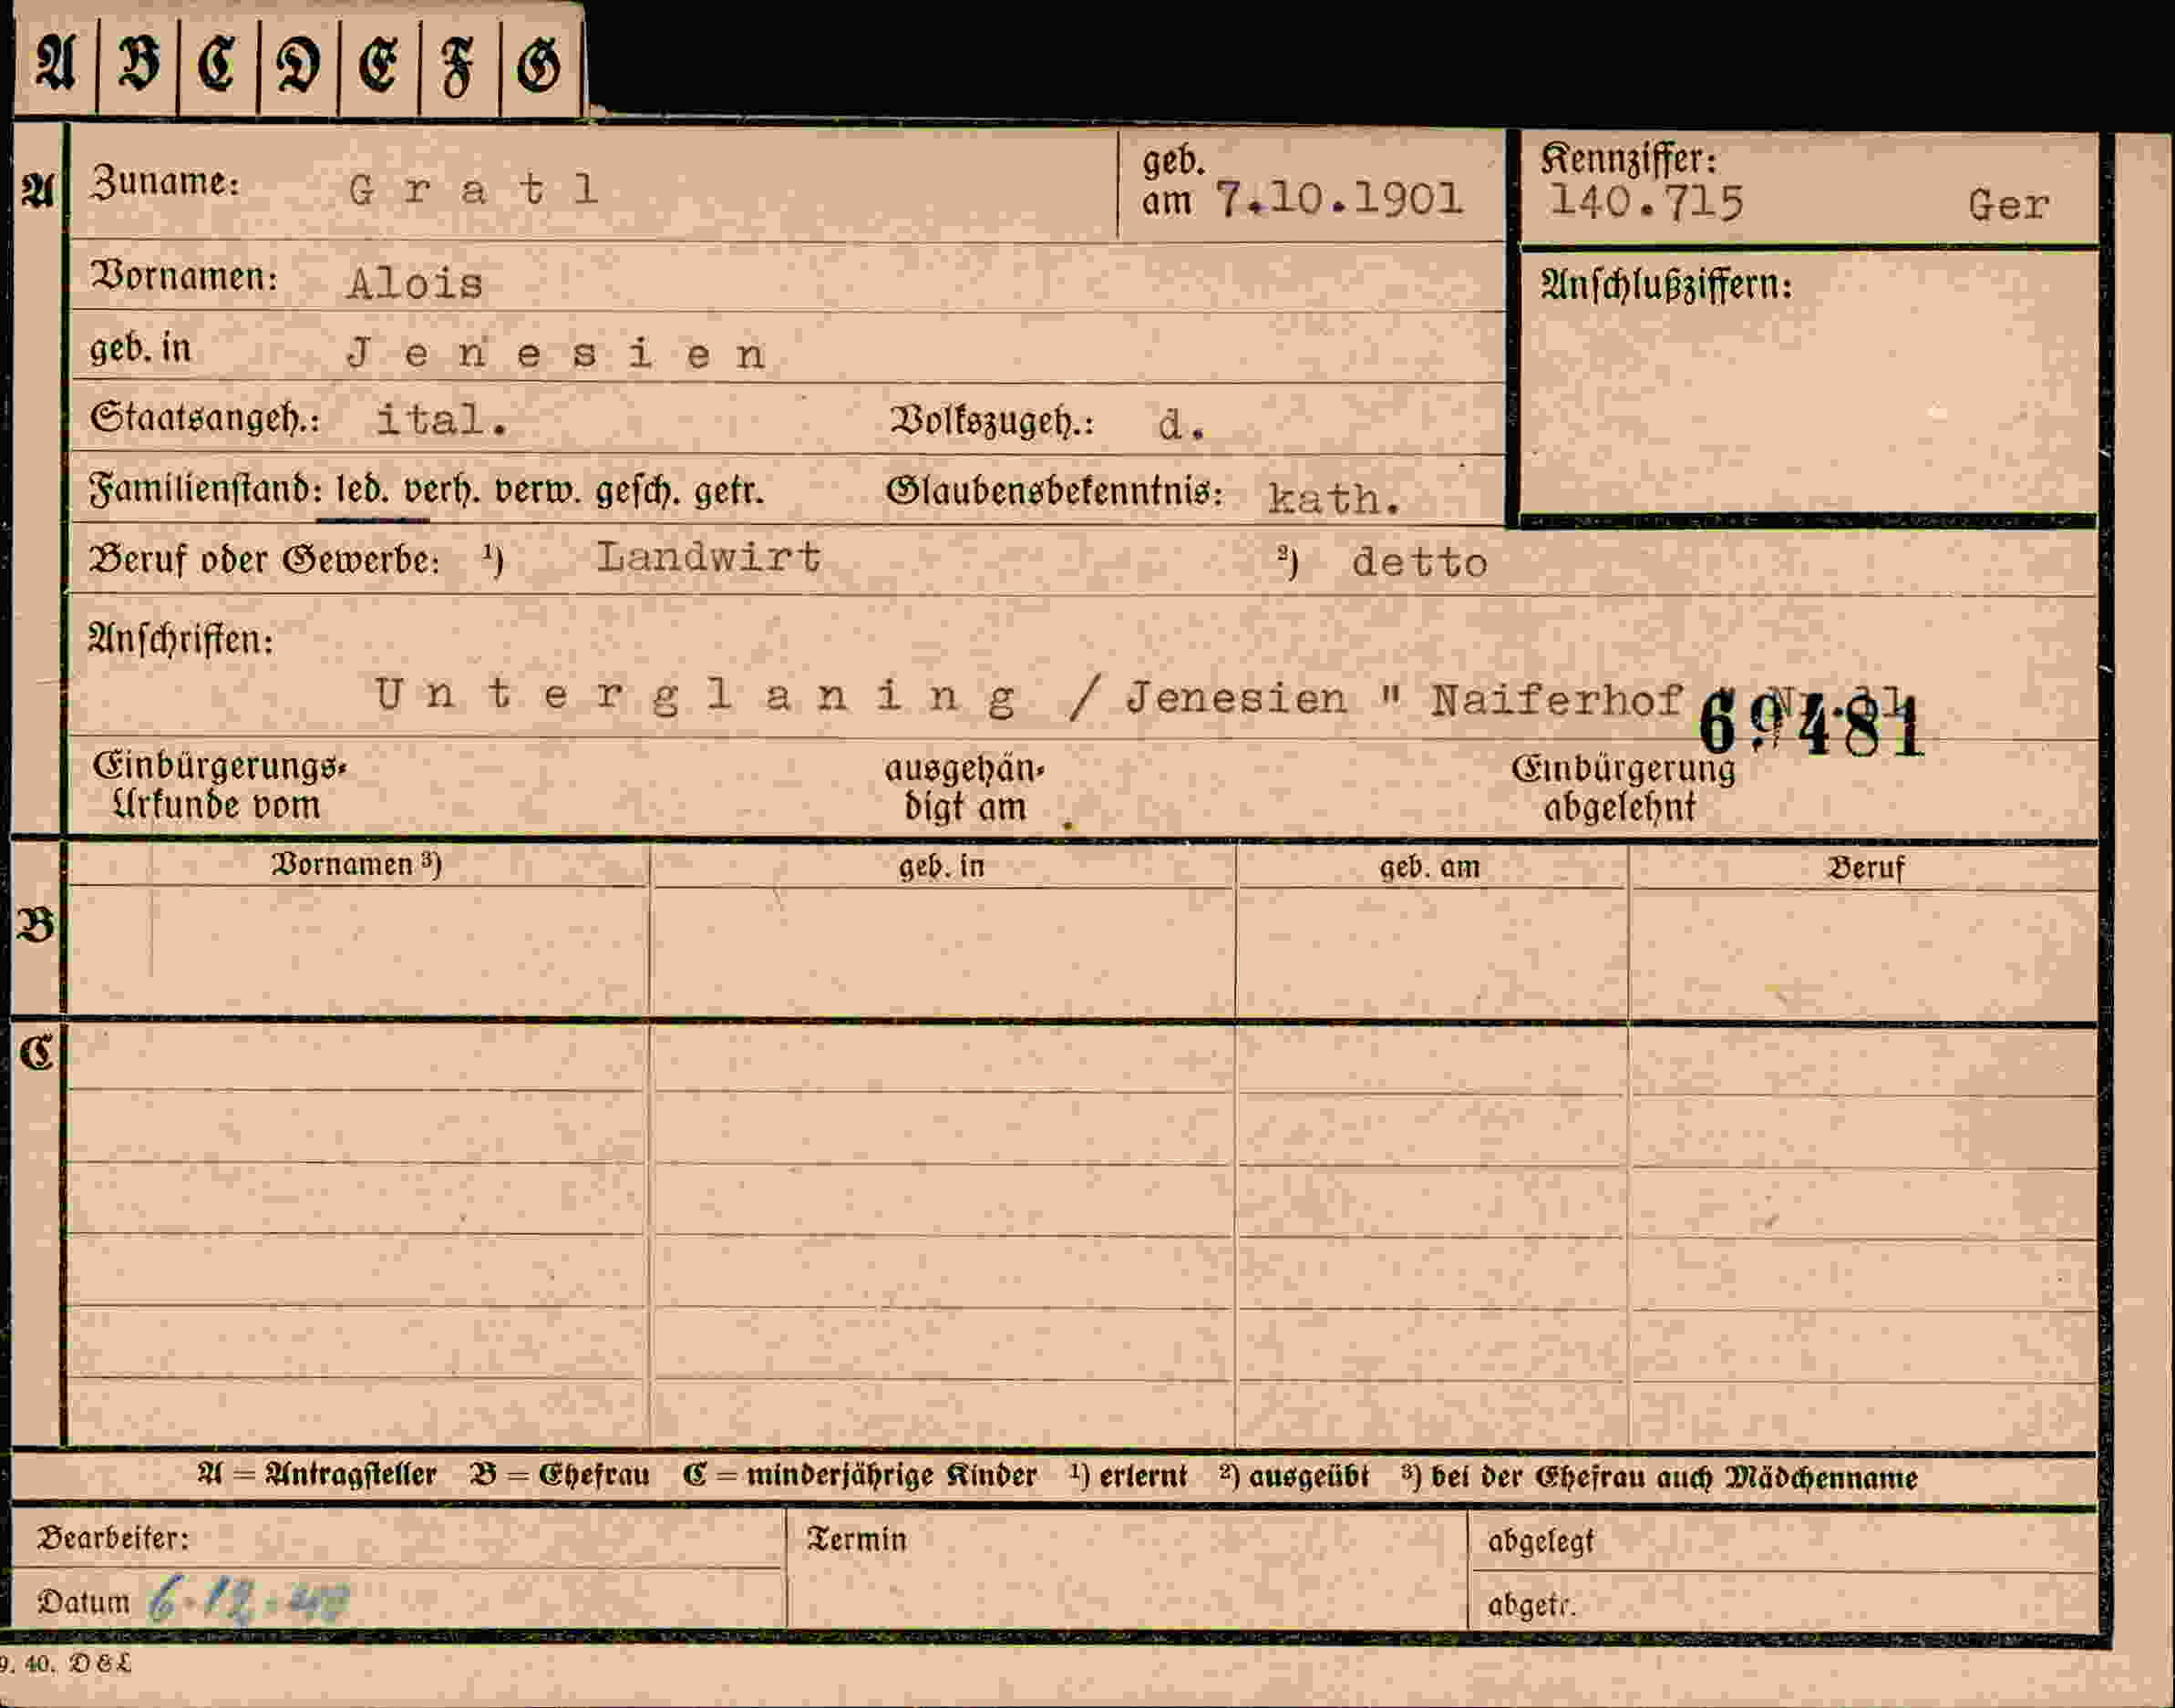 A B C D E F G
A Zuname: Gratl geb. am 7.10.1901 Kennziffer: 140.715 Ger
Vornamen: Alois Anschlußziffern:
geb. in Jenesien
Staatsangeh.: ital. Volkszugeh.: d.
Familienstand: led. verh. verw. gesch. getr. Glaubensbekenntnis: kath.
Beruf oder Gewerbe: ¹) Landwirt ²) detto
Anschriften:
Unterglaning / Jenesien " Naiferhof 69481
Einbürgerungs- ausgehän- Einbürgerung
Urkunde vom digt am abgelehnt
Vornamen ³) geb. in geb. am Beruf
B
C
A = Antragsteller B = Ehefrau C = minderjährige Kinder ¹) erlernt ²) ausgeübt ³) bei der Ehefrau auch Mädchenname
Bearbeiter: Termin abgelegt
Datum 6.12.40 abgetr.
9. 40. D & L